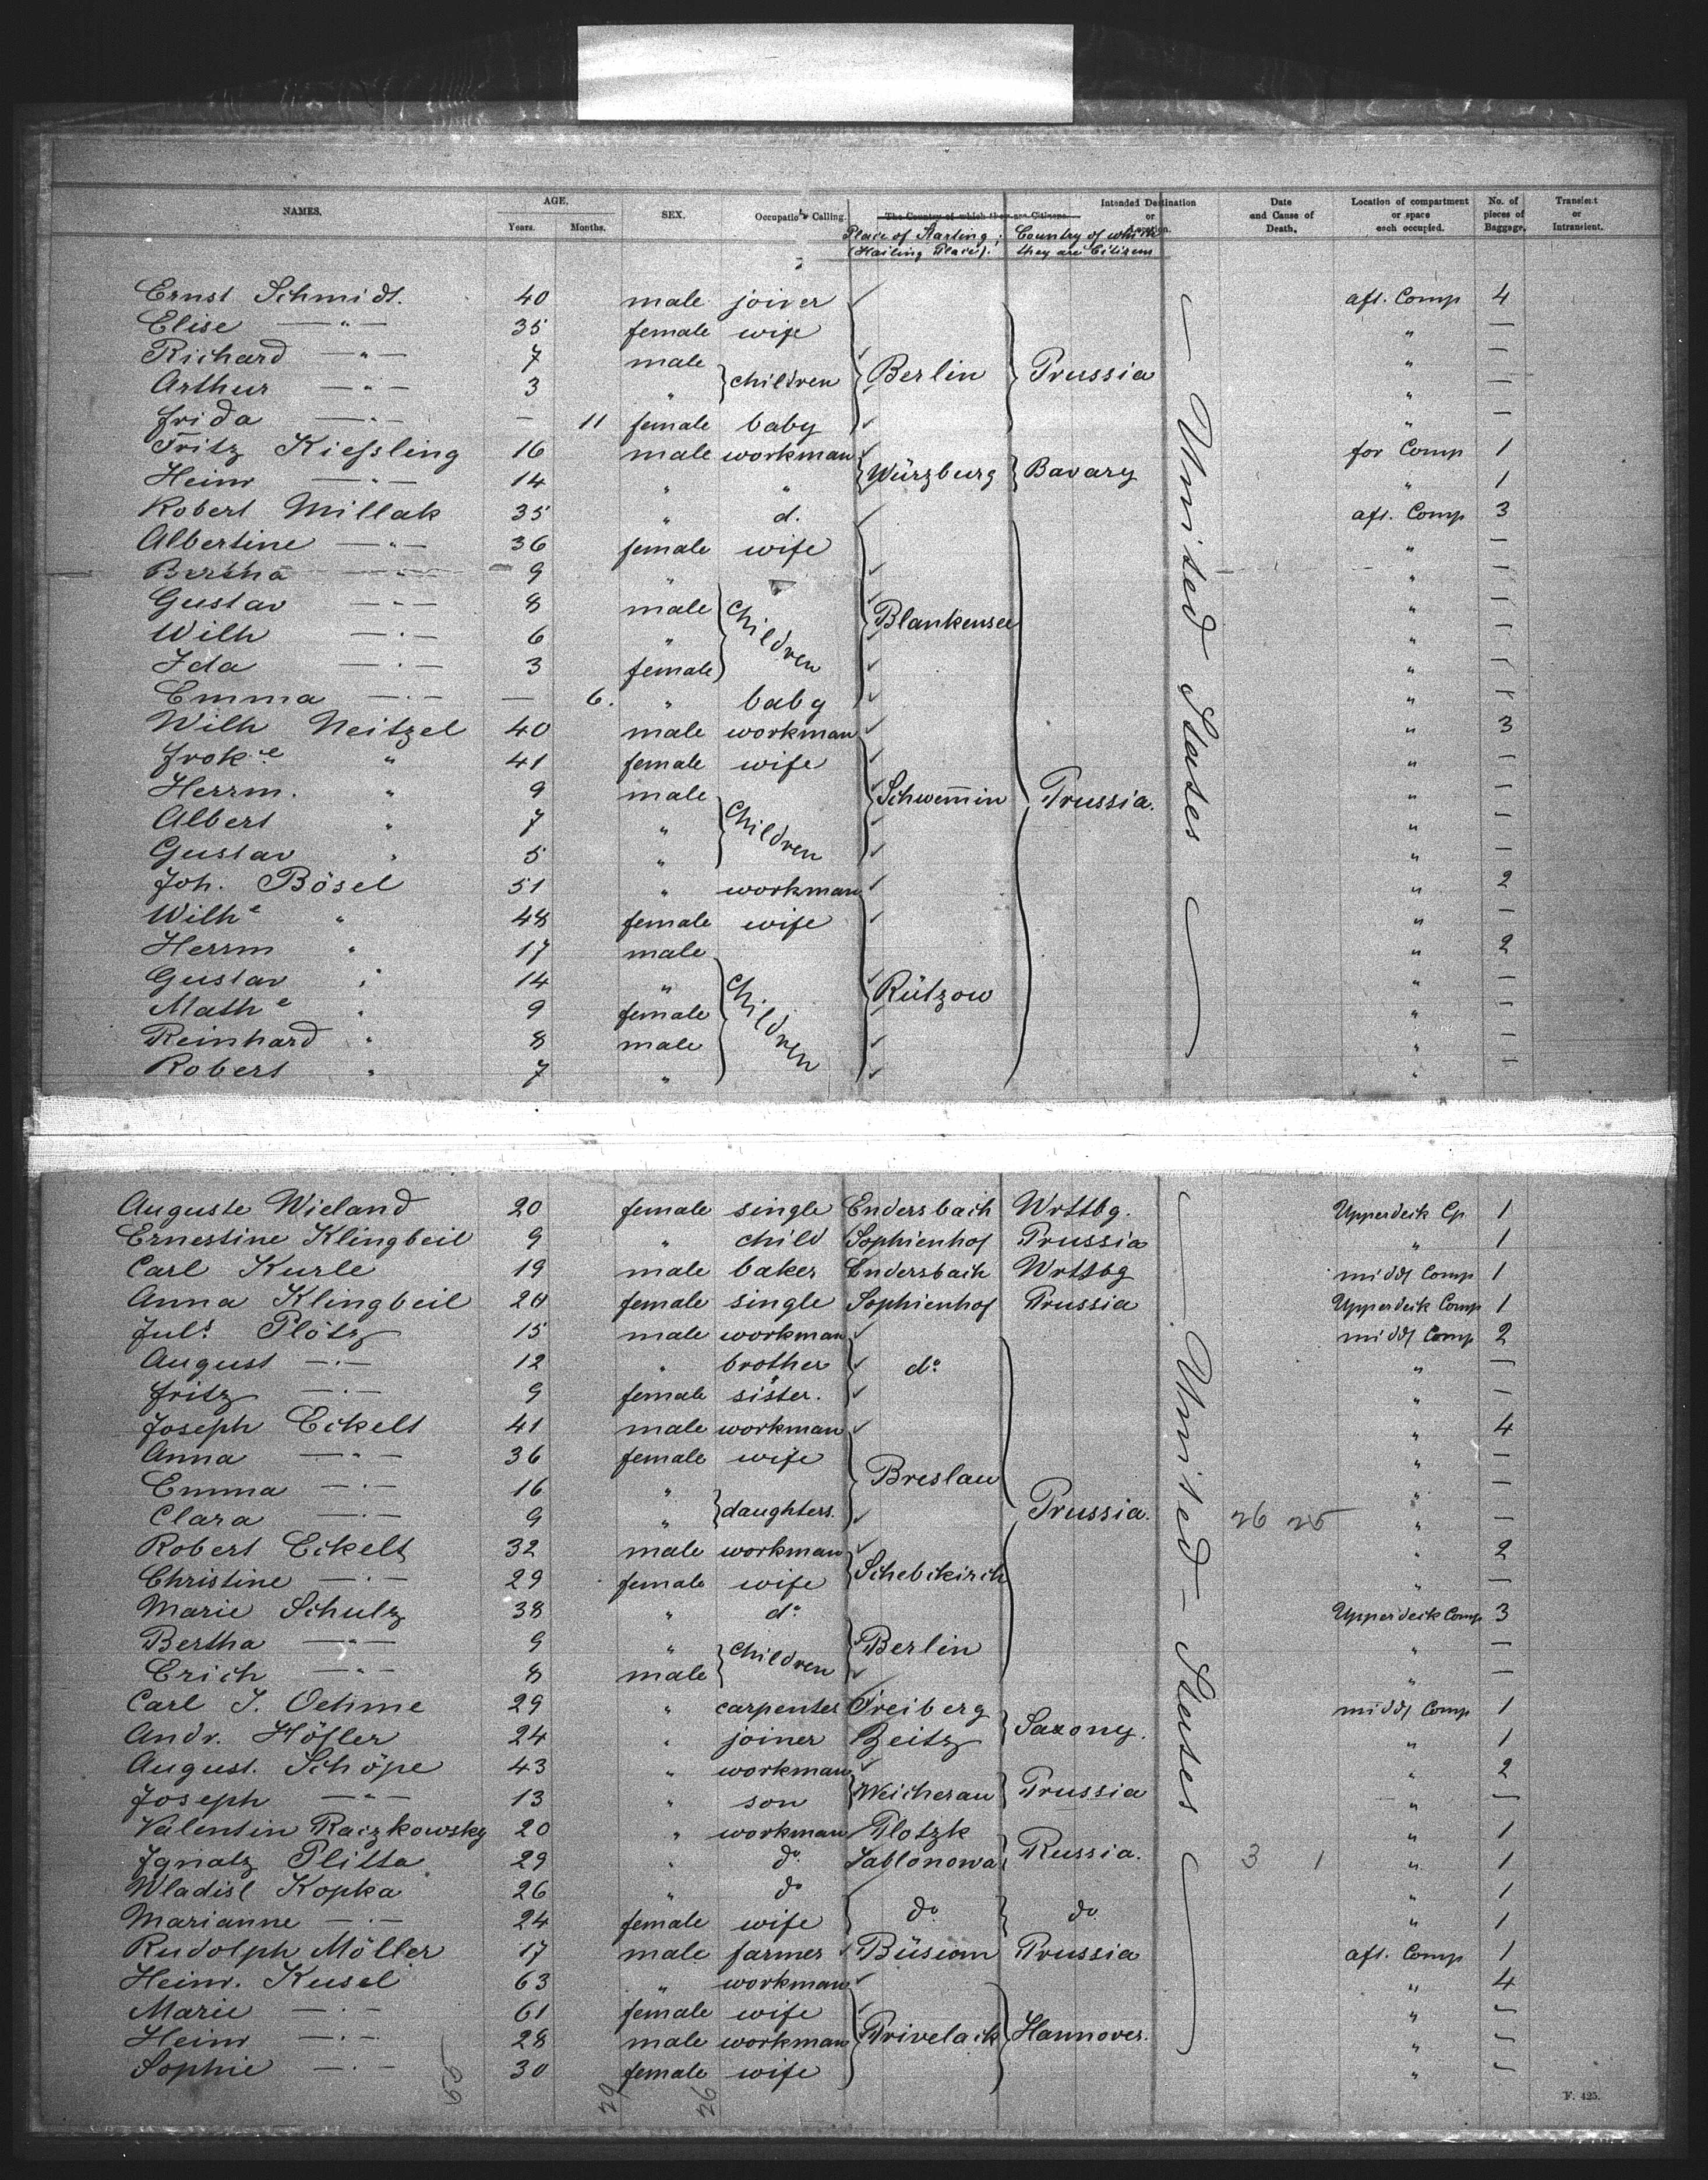 NAMES. AGE. Years. Months. SEX. Occupation Calling. The Country of which they are Citizens. Intended Destination or Location. Date and Cause of Death. Location of compartment or space each occupied. No. of pieces of Baggage. Transient or Intransient.
Place of Starting; (Hailing Place). Country of which they are Citizens
Ernst Schmidt. 40 male joiner ✓ aft. Comp 4
Elise —"— 35 female wife " —
Richard —"— 7 male ✓ " —
Arthur —"— 3 " children Berlin Prussia " —
Frida —"— — 11 female baby ✓ " —
Fritz Kießling 16 male workman ✓ for Comp 1
Heinr —"— 14 " " Würzburg Bavary " 1
Robert Millak 35 " d. ✓ aft. Comp 3
Albertine —"— 36 female wife " —
Bertha —"— 9 " ✓ " —
Gustav —"— 8 male children Blankensee " —
Wilh —"— 6 " ✓ " —
Ida —"— 3 female ✓ " —
Emma —"— — 6. " baby ✓ "
Wilh Neitzel 40 male workman ✓ " 3
Frok.e " 41 female wife ✓ " —
Herrm. " 9 male Schwem̄in Prussia. " —
Albert " 7 " children ✓ " —
Gustav " 5 " ✓ " —
Joh. Bösel 51 " workman ✓ " 2
Wilhe " 48 female wife ✓ " —
Herrm " 17 male " 2
Gustav " 14 " children Rützow " —
Mathe " 9 female " —
Reinhard " 8 male ✓ " —
Robert " 7 " ✓ " —
United States
Auguste Wieland 20 female single Endersbach Wrttbg. Upperdeck Cp 1
Ernestine Klingbeil 9 " child Sophienhof Prussia " 1
Carl Kurle 19 male baker Endersbach Wrttbg midd Comp 1
Anna Klingbeil 20 female single Sophienhof Prussia Upperdeck Comp 1
Juls. Plötz 15 male workman ✓ midd Comp 2
August —"— 12 " brother ✓ do " —
Fritz —"— 9 female sister. ✓ " —
Joseph Eckelt 41 male workman ✓ " 4
Anna —"— 36 female wife " —
Emma —"— 16 " Breslau " —
Clara —"— 9 " daughters. ✓ Prussia. 26 25 " —
Robert Eckelt 32 male workman ✓ " 2
Christine —"— 29 female wife Schebekirch " —
Marie Schulz 38 " do Upperdeck Comp 3
Bertha —"— 9 " children Berlin " —
Erich —"— 8 male ✓ " —
Carl J. Oehme 29 " carpenter Freiberg midd Comp 1
Andr. Höfler 24 " joiner Zeitz Saxony. " 1
August. Schöpe 43 " workman ✓ " 2
Joseph —"— 13 " son Weicherau Prussia " —
Valentin Raczkowsky 20 " workman Plotzk " 1
Ignatz Plitta 29 " do Jablonowa Russia. 3 1 " 1
Wladisl Kopka 26 " do " 1
Marianne —"— 24 female wife do do " 1
Rudolph Möller 17 male farmer Büsum Prussia aft. Comp 1
Heinr. Kusel 63 " workman ✓ " 4
Marie —"— 61 female wife ✓ " —
Heinr —"— 28 male workman Privelack Hannover. " —
Sophie —"— 30 female wife " —
United States
55 29 26
F. 425.